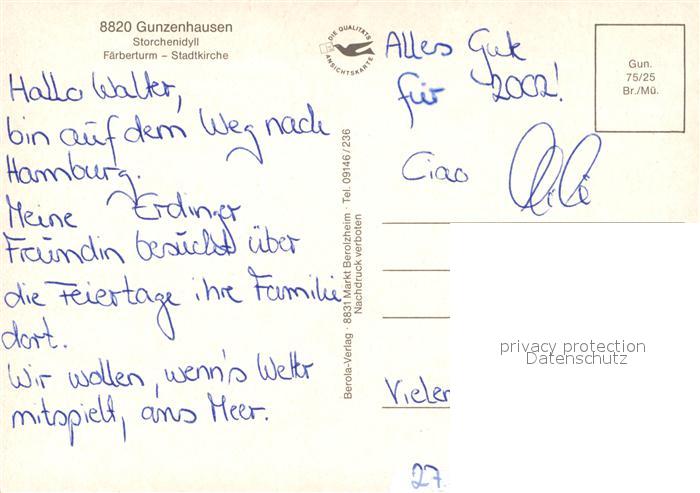 8820 Gunzenhausen
Storchenidyll
Färberturm – Stadtkirche
DIE QUALITÄTS
ANSICHTSKARTE
Hallo Walter,
bin auf dem Weg nach
Hamburg.
Meine Erdinger
Freundin besucht über
die Feiertage ihre Familie
dort.
Wir wollen, wenn's Wetter
mitspielt, ans Meer.
Berola-Verlag · 8831 Markt Berolzheim · Tel. 09146/236
Nachdruck verboten
Alles Gute
für 2002!
Ciao
Gun.
75/25
Br./Mü.
privacy protection
Datenschutz
27.